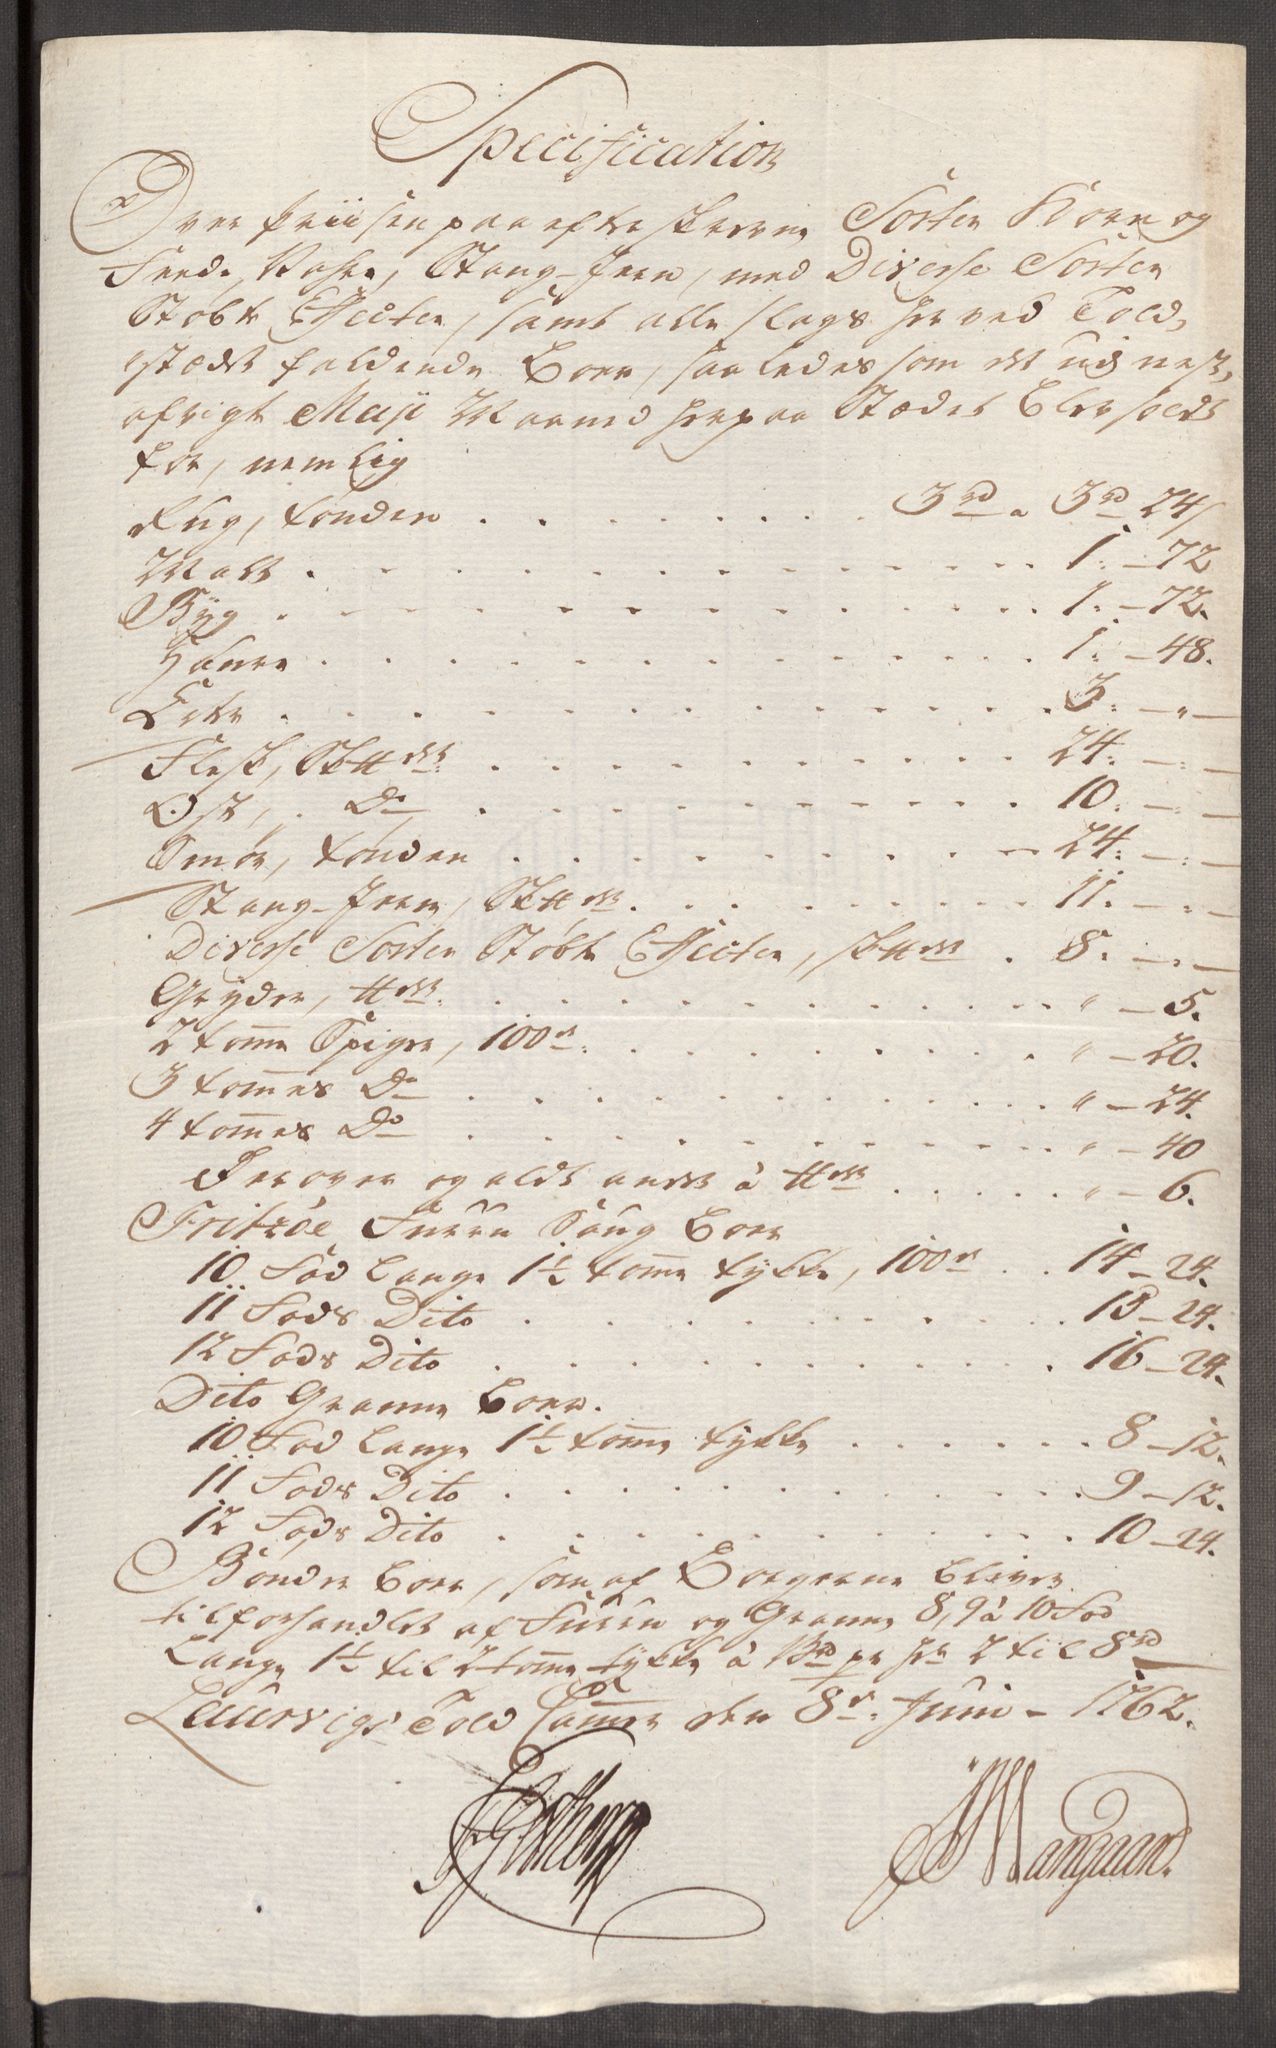 Specification
Over priisen paa efterskrevne Sorter Korn og
Feede Vahre, Stang-Jern, med Diverse Sorter
Støbte Effecter, samt alle slags her ved Told,
stædet faldende Bord, saaledes som det udi nest,
afvigte Maji Maaned her paa Stædet Blev solgt
for, nemlig
Rug, tønden . . . . . . . 3 rd a 3 rd 24 /
Malt . . . . . . . 1: – 72
Byg . . . . . . . 1: – 72.
Habre . . . . . . . 1: – 48.
Erter . . . . . . . 3: – „ –
Flesk, Sk℔det . . . . . . . 24: – : –
Ost, Do . . . . . . . 10: – : –
Smør, tønden . . . . . . . 24: – : –
Stang-Jern, Sk℔det . . . . . . . 11. – : –
Diverse Sorter Støbte Effecter, sk℔det . 8. – . –
Gryder, ℔det . . . . . . . „ – 5.
2 tomme Spiger, 100de . . . . . . . „ – 20.
3 tommes Do . . . . . . . „ – 24.
4 tommes Do . . . . . . . „ – 40
Derover og aldt andet à ℔det . . . . . „ – 6.
Fritzöe Furru Saug Bord
10 Fod Lange 1½ tomme tykke, 100de . . 14 – 24.
11 Fods Dito . . . . . . . 15 – 24.
12 Fods Dito . . . . . . . 16 – 24.
Dito Granne Bord.
10 Fod Lange 1½ tomme tykke . . . . . . 8 – 12.
11 Fods Dito . . . . . . . 9 – 12.
12 Fods Dito . . . . . . . 10 – 24.
Bønder Bord, som af Borgerne bliver
tilforhandlet af Furru og Granne, 8, 9 à 10 Fod
Lange 1½ til 2 tomme tykke à 7 til 8 rd
Laurvigs Told Cammer den 8de Junii – 1762.
Mangaard.